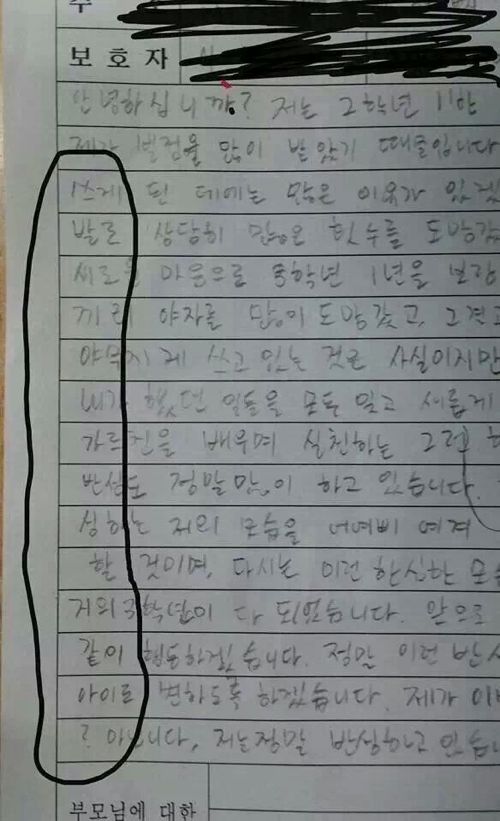 주
보호자
안녕하십니까? 저는 2학년 11반
제가 벌점을 많이 받았기 때문입니다
쓰게 된 데에는 많은 이유가 있겠
발로 상당히 많은 횟수를 도망갔
새로운 마음으로 중학년 1년을 보람
끼리 야자를 많이 도망갔고, 그 결과
야무지게 쓰고 있는 것도 사실이지만
내가 했던 일들을 모두 잊고 새롭게
가르침을 배우며 실천하는 그런
반성도 정말 많이 하고 있습니다.
성하는 저의 모습을 어여삐 여겨
할 것이며, 다시는 이런 한심한 모습
거의 3학년이 다 되었습니다. 앞으로
같이 행동하겠습니다. 정말 이런 반성
아이로 변하도록 하겠습니다. 제가 이
? 아닙니다, 저는 정말 반성하고 있습니
부모님에 대한